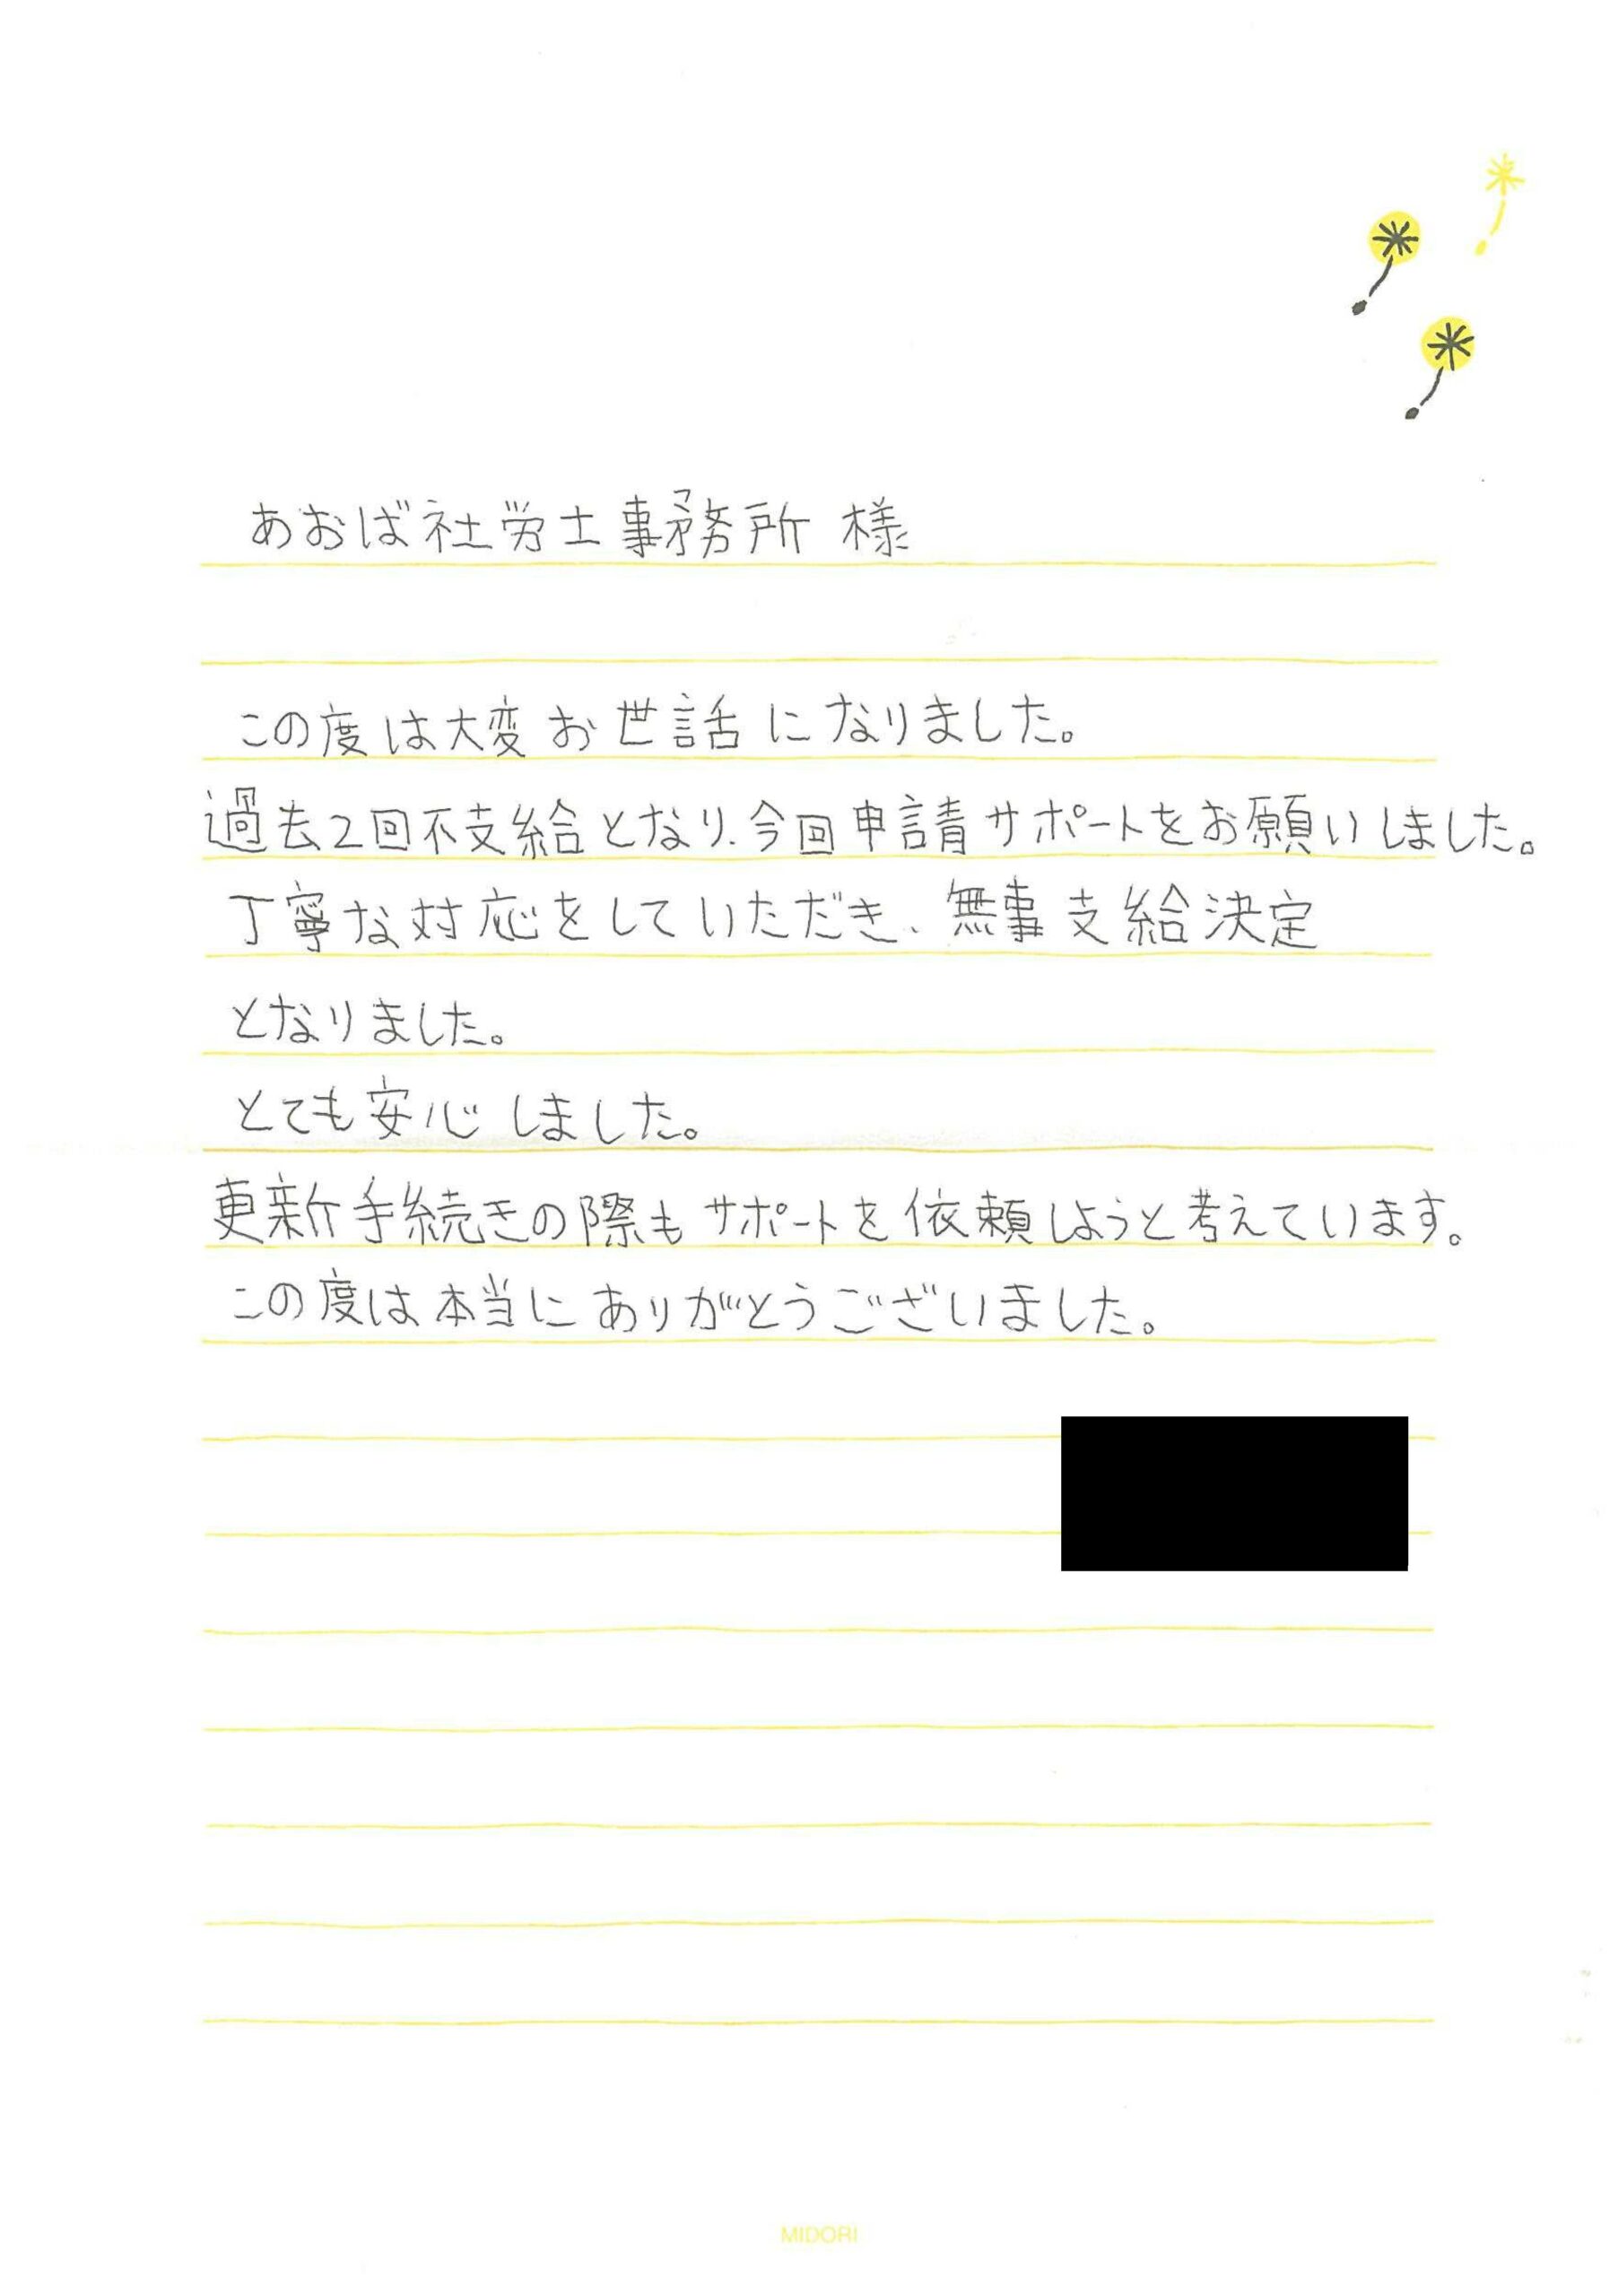 あおば社労士事務所 様
この度は大変お世話になりました。
過去2回不支給となり、今回申請サポートをお願いしました。
丁寧な対応をしていただき、無事支給決定
となりました。
とても安心しました。
更新手続きの際もサポートを依頼しようと考えています。
この度は本当にありがとうございました。
MIDORI